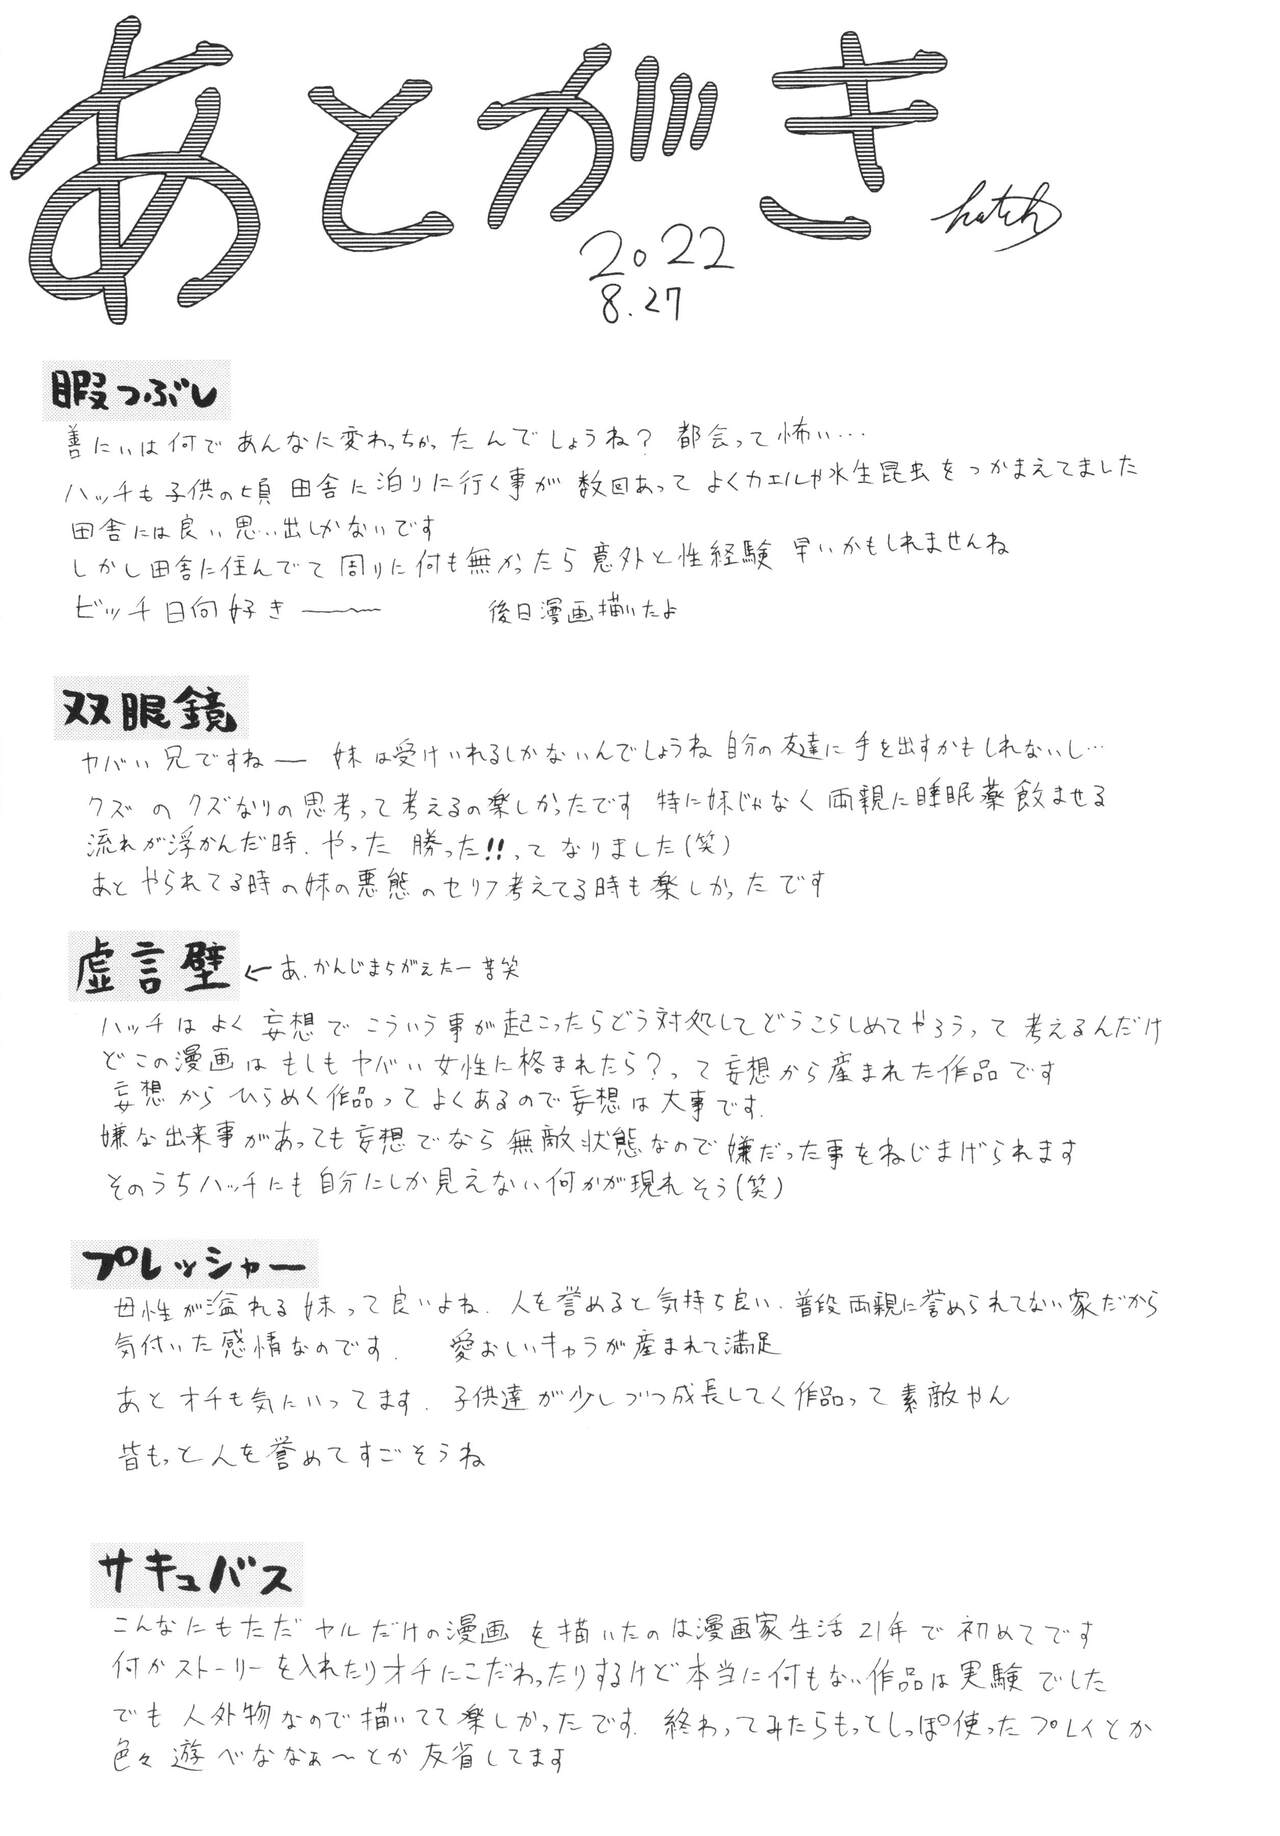 あとがき
hatch
2022
8.27
暇つぶし
善にぃは何であんなに変わっちゃったんでしょうね? 都会って怖い…
ハッチも子供の頃 田舎に泊りに行く事が 数回あって よくカエルや水生昆虫をつかまえてました
田舎には良い思い出しかないです
しかし田舎に住んでて 周りに何も無かったら 意外と性経験 早いかもしれませんね
ビッチ日向好きー 後日漫画描いたよ
双眼鏡
ヤバい兄ですねー 妹は受けいれるしかないんでしょうね 自分の友達に手を出すかもしれないし…
クズのクズなりの思考って考えるの楽しかったです 特に妹じゃなく両親に睡眠薬飲ませる
流れが浮かんだ時、やった 勝った!!ってなりました(笑)
あとやられてる時の妹の悪態のセリフ考えてる時も楽しかったです
虚言壁 ← あ、かんじまちがえたー苦笑
ハッチはよく妄想でこういう事が起こったらどう対処してどうこらしめてやろうって考えるんだけ
どこの漫画はもしもヤバい女性に格まれたら?って妄想から産まれた作品です
妄想からひらめく作品ってよくあるので妄想は大事です.
嫌な出来事があっても妄想でなら無敵状態なので嫌だった事をねじまげられます
そのうちハッチにも自分にしか見えない何かが現れそう(笑)
プレッシャー
母性が溢れる妹って良いよね. 人を誉めると気持ち良い.普段両親に誉められてない家だから
気付いた感情なのです. 愛おしいキャラが産まれて満足
あとオチも気にいってます. 子供達が少しづつ成長してく作品って素敵やん
皆もっと人を誉めてすごそうね
サキュバス
こんなにもただヤルだけの漫画を描いたのは漫画家生活21年で初めてです
何かストーリーを入れたりオチにこだわったりするけど本当に何もない作品は実験でした
でも人外物なので描いてて楽しかったです. 終わってみたらもっとしっぽ使ったプレイとか
色々遊べななぁ〜とか反省してます